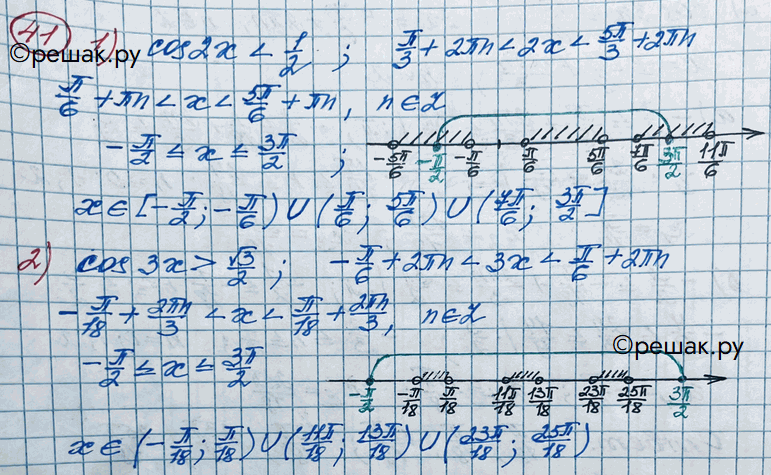 41 1) cos2x < 1/2 ; π/3 + 2πn < 2x < 5π/3 + 2πn
©решак.ру
π/6 + πn < x < 5π/6 + πn, n∈Z
-π/2 ≤ x ≤ 3π/2 ;
-5π/6 -π/2 -π/6 π/6 5π/6 7π/6 3π/2 11π/6
x∈[-π/2; -π/6) ∪ (π/6; 5π/6) ∪ (7π/6; 3π/2]
2) cos3x > √3/2 ; -π/6 + 2πn < 3x < π/6 + 2πn
-π/18 + 2πn/3 < x < π/18 + 2πn/3, n∈Z
©решак.ру
-π/2 ≤ x ≤ 3π/2
-π/2 -π/18 π/18 11π/18 13π/18 23π/18 25π/18 3π/2
x∈(-π/18; π/18) ∪ (11π/18; 13π/18) ∪ (23π/18; 25π/18)